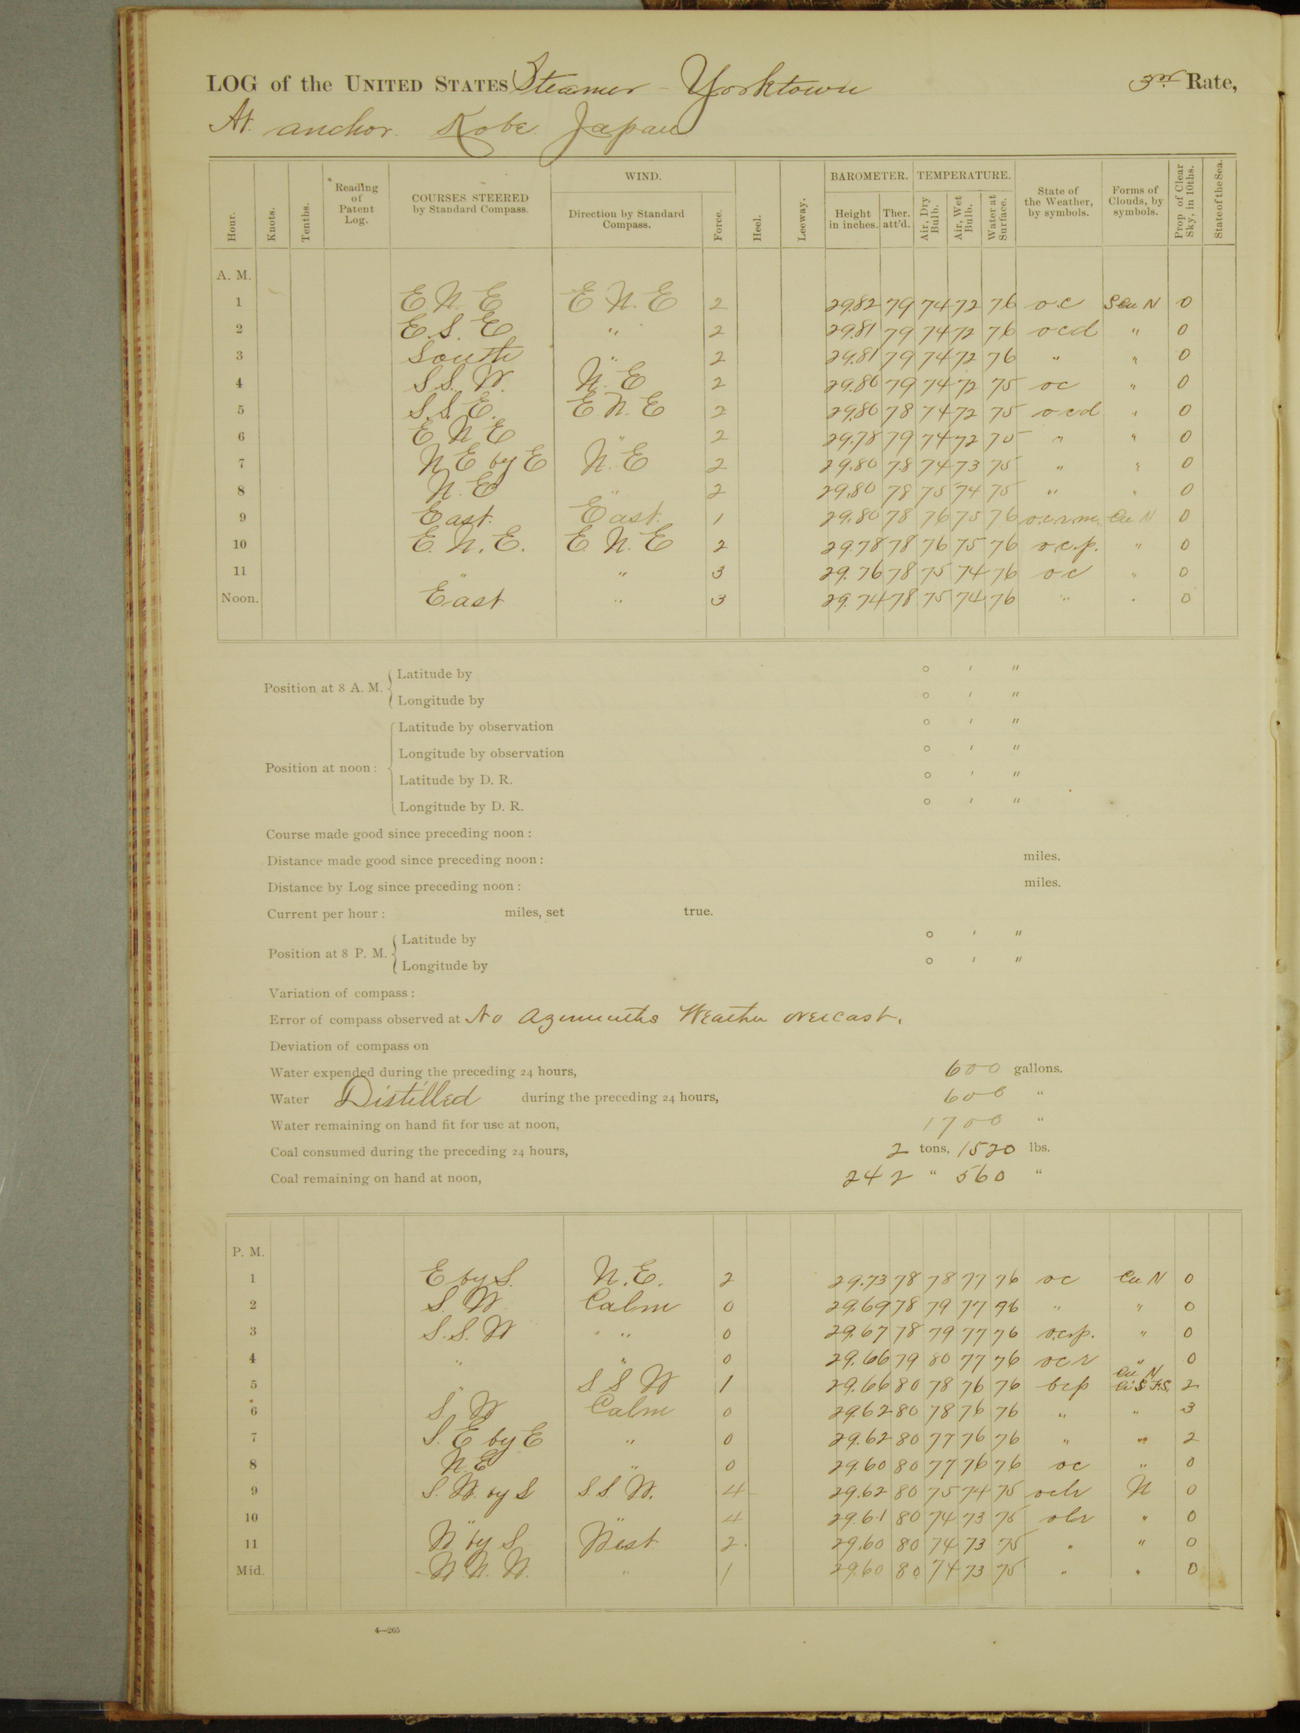 LOG of the UNITED STATES Steamer Yorktown 3rd Rate,
At anchor. Kobe Japan
Hour. Knots. Tenths. Reading of Patent Log. COURSES STEERED by Standard Compass. WIND. Direction by Standard Compass. Force. Heel. Leeway. BAROMETER. Height in inches. Ther. att'd. TEMPERATURE. Air, Dry Bulb. Air, Wet Bulb. Water at Surface. State of the Weather, by symbols. Forms of Clouds, by symbols. Prop. of Clear Sky, in 10ths. State of the Sea.
A. M.
1 E N E E N. E 2 29.82 79 74 72 76 o.c S Cu N 0
2 E. S. E " 2 29.81 79 74 72 76 ocd " 0
3 South " 2 29.81 79 74 72 76 " " 0
4 S S. W. N. E 2 29.80 79 74 72 75 oc " 0
5 S. S. E. E N. E 2 29.80 78 74 72 75 ocd " 0
6 E N E " 2 29.78 79 74 72 75 " " 0
7 N E by E N. E 2 29.80 78 74 73 75 " " 0
8 N. E " 2 29.80 78 75 74 75 " " 0
9 East. East 1 29.80 78 76 75 76 o.c.r.m. Cu N 0
10 E. N. E. E N. E 2 29.78 78 76 75 76 o.c.p. " 0
11 " " 3 29.76 78 75 74 76 oc " 0
Noon. East " 3 29.74 78 75 74 76 " " 0
Position at 8 A. M. Latitude by ° ' "
Longitude by ° ' "
Position at noon: Latitude by observation ° ' "
Longitude by observation ° ' "
Latitude by D. R. ° ' "
Longitude by D. R. ° ' "
Course made good since preceding noon:
Distance made good since preceding noon: miles.
Distance by Log since preceding noon: miles.
Current per hour: miles, set true.
Position at 8 P. M. Latitude by ° ' "
Longitude by ° ' "
Variation of compass:
Error of compass observed at No Azimuths Weather overcast.
Deviation of compass on
Water expended during the preceding 24 hours, 600 gallons.
Water Distilled during the preceding 24 hours, 600 "
Water remaining on hand fit for use at noon, 1700 "
Coal consumed during the preceding 24 hours, 2 tons, 1520 lbs.
Coal remaining on hand at noon, 242 " 560 "
P. M.
1 E by S. N. E. 2 29.73 78 78 77 76 oc Cu N 0
2 S. W. Calm 0 29.69 78 79 77 76 " " 0
3 S. S. W " " 0 29.67 78 79 77 76 o.c.p. " 0
4 " " 0 29.66 79 80 77 76 ocr " 0
5 " S S W 1 29.66 80 78 76 76 bcp Cu N Ci S 2
6 S. W Calm 0 29.62 80 78 76 76 " " 3
7 S. E by E " 0 29.62 80 77 76 76 " " 2
8 N. E " 0 29.60 80 77 76 76 oc " 0
9 S. W. by S S S W. 4 29.62 80 75 74 75 N 0
10 " " 4 29.61 80 74 73 75 " 0
11 W by S. West 2 29.60 80 74 73 75 " " 0
Mid. W. N. W. " 1 29.60 80 74 73 75 " " 0
4—265